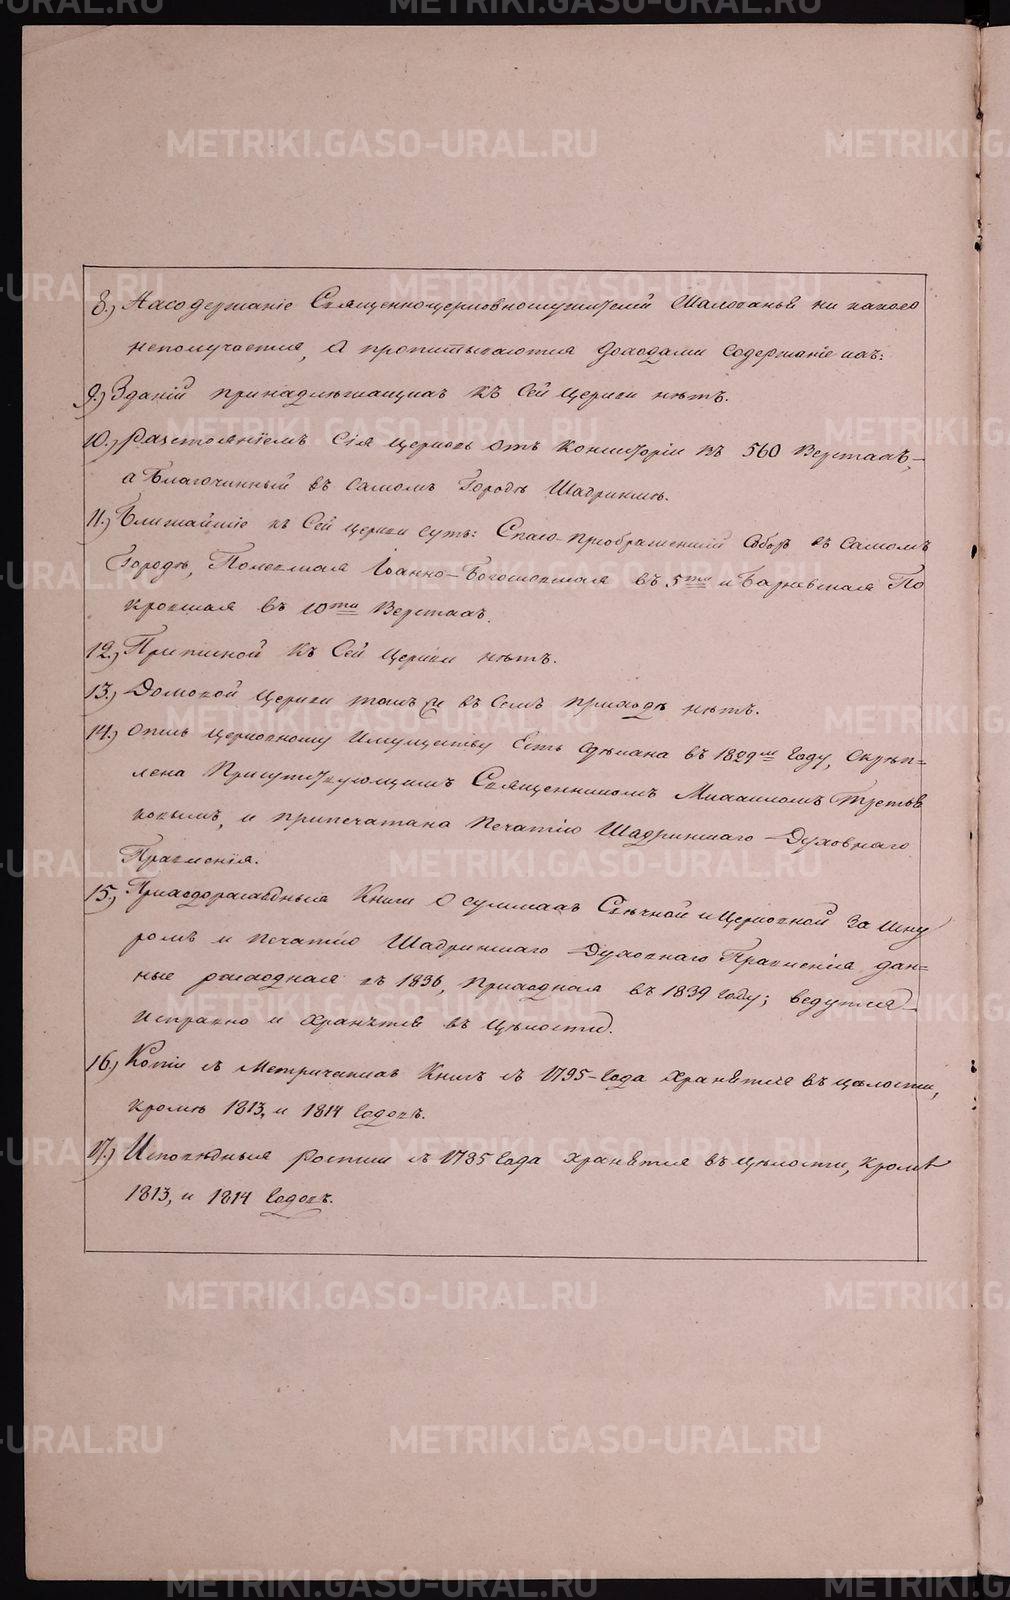 8.) На содержаніе Священноцерковнослужителей Жалованья ни какого
неполучается, А пропитываются доходами содержаніе ихъ:
9.) Зданій принадлежащихъ къ Сей Церкви нѣтъ.
10.) Разстояніемъ Сія церковь отъ Консисторіи въ 560 Верстахъ,
а Благочинный въ самомъ Городѣ Шадринскѣ.
11.) Ближайшіе къ Сей церкви суть: Спасо-преображенскій Соборъ въ Самомъ
Городѣ, Іоанно-Богословская въ 5ти и Барневская По
кровская въ 10ти Верстахъ.
12.) Приписной къ Сей церкви нѣтъ.
13.) Домовой церкви въ Семъ приходѣ нѣтъ.
14.) Опись церковному Имуществу Есть Сдѣлана въ 1829м Году, Скрѣп=
лена Присутствующимъ Священникомъ Михаиломъ Третья
ковымъ, и припечатана Печатію Шадринскаго Духовнаго
Правленія.
15.) Приходорасходныя Книги о суммахъ Свѣчной и Церковной За шну
ромъ и печатію Шадринскаго Духовнаго Правленія дан=
ные расходная въ 1836, приходная въ 1839 году; ведутся
исправно и хранятся въ цѣлости.
16.) Копіи съ Метрическихъ Книгъ съ 1795 Года хранятся въ цѣлости,
кромѣ 1813, и 1814 Годовъ.
17.) Исповѣдныя росписи съ 1785 Года хранятся въ цѣлости, кромѣ
1813, и 1814 Годовъ.
METRIKI.GASO-URAL.RU